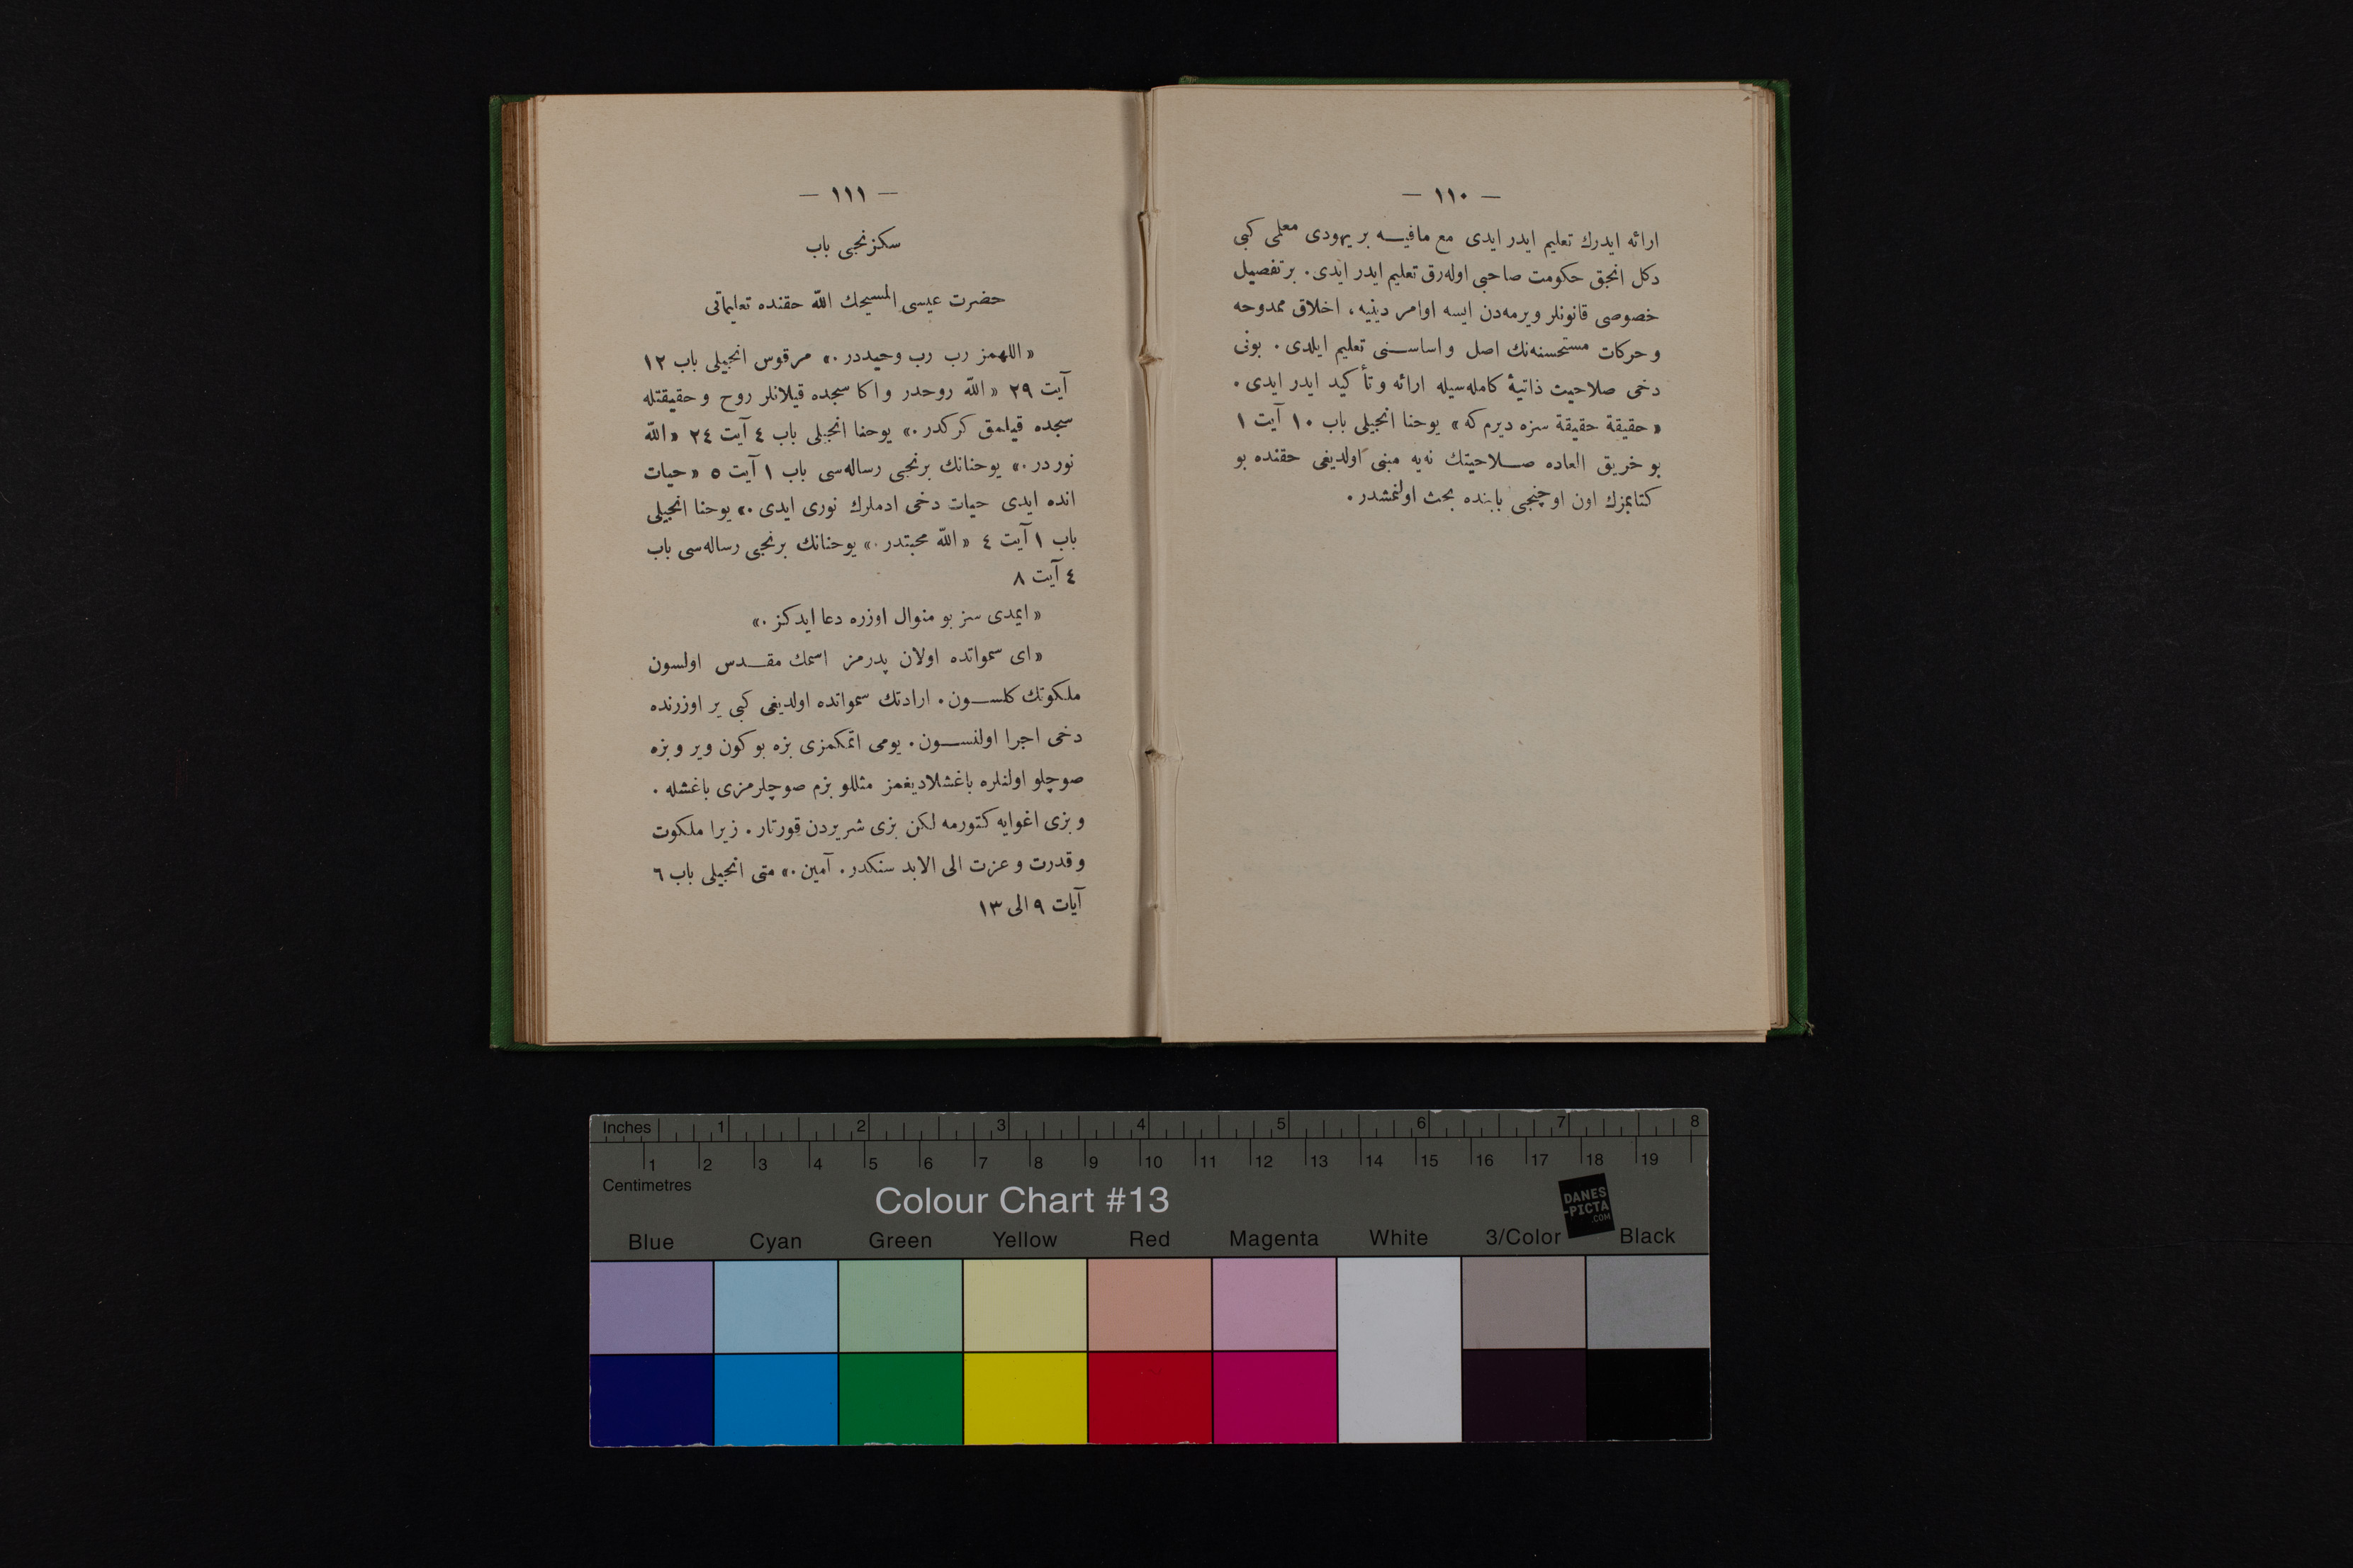 — ١١٠ —
ارائه ايدرك تعليم ايدر ايدى مع مافيه بر يهودى معلمى كبى
دكل انجق حكومت صاحبى اوله‌رق تعليم ايدر ايدى. بر تفصيل
خصوصى قانونلر ويرمه‌دن ايسه اوامر دينيه، اخلاق ممدوحه
و حركات مستحسنه‌نك اصل و اساسنى تعليم ايلدى. بونى
دخى صلاحيت ذاتيۀ كامله‌سيله ارائه و تأكيد ايدر ايدى.
«حقيقة حقيقة سزه ديرم كه» يوحنا انجيلى باب ١٠ آيت ١
بو خريق العاده صلاحيتك نه‌يه مبنى اولديغى حقنده بو
كتابمزك اون اوچنجى بابنده بحث اولنمشدر.
— ١١١ —
سكزنجى باب
حضرت عيسى المسيحك الله حقنده تعليماتى
«اللهمز رب رب وحيددر.» مرقوس انجيلى باب ١٢
آيت ٢٩ «الله روحدر و اكا سجده قيلانلر روح و حقيقتله
سجده قيلمق كركدر.» يوحنا انجيلى باب ٤ آيت ٢٤ «الله
نور در.» يوحنانك برنجى رساله‌سى باب ١ آيت ٥ «حيات
انده ايدى حيات دخى ادملرك نورى ايدى.» يوحنا انجيلى
باب ١ آيت ٤ «الله محبتدر.» يوحنانك برنجى رساله‌سى باب
٤ آيت ٨
«ايمدى سز بو منوال اوزره دعا ايدكز.»
«اى سمواتده اولان پدرمز اسمك مقدس اولسون
ملكوتك كلسون. ارادتك سمواتده اولديغى كبى ير اوزرنده
دخى اجرا اولنسون. يومى اتمكمزى بزه بو كون وير و بزه
صوچلو اولنلره باغشلاديغمز مثللو بزم صوچلرمزى باغشله.
و بزى اغوايه كتورمه لكن بزى شريردن قورتار. زيرا ملكوت
و قدرت و عزت الى الابد سنكدر. آمين.» متى انجيلى باب ٦
آيات ٩ الى ١٣
Inches 1 2 3 4 5 6 7 8
1 2 3 4 5 6 7 8 9 10 11 12 13 14 15 16 17 18 19
Centimetres
Colour Chart #13
DANES
-PICTA
.COM
Blue Cyan Green Yellow Red Magenta White 3/Color Black